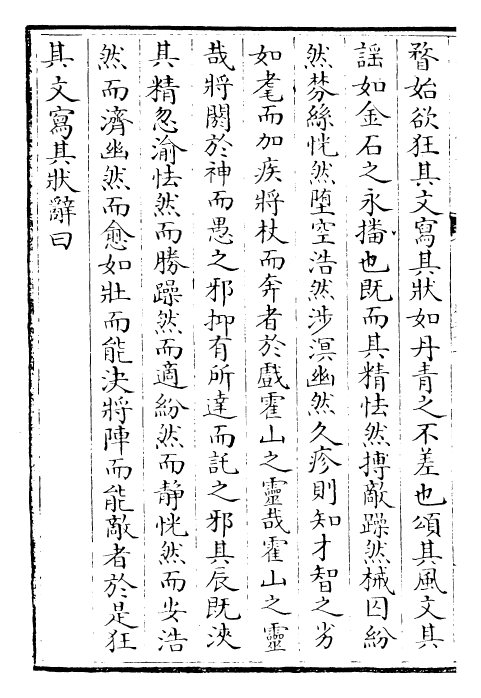 瞀始欲狂其文寫其狀如丹青之不差也頌其風文其
謡如金石之永播也既而其精怯然搏敵躁然械囚紛
然棼絲恍然墮空浩然涉溟幽然久疹則知才智之劣
如耄而加疾將杖而奔者於戲霍山之靈哉霍山之靈
哉將閟於神而愚之邪抑有所達而託之邪其辰既浹
其精忽渝怯然而勝躁然而適紛然而静恍然而安浩
然而濟幽然而愈如壯而能決將陣而能敵者於是狂
其文寫其狀辭曰